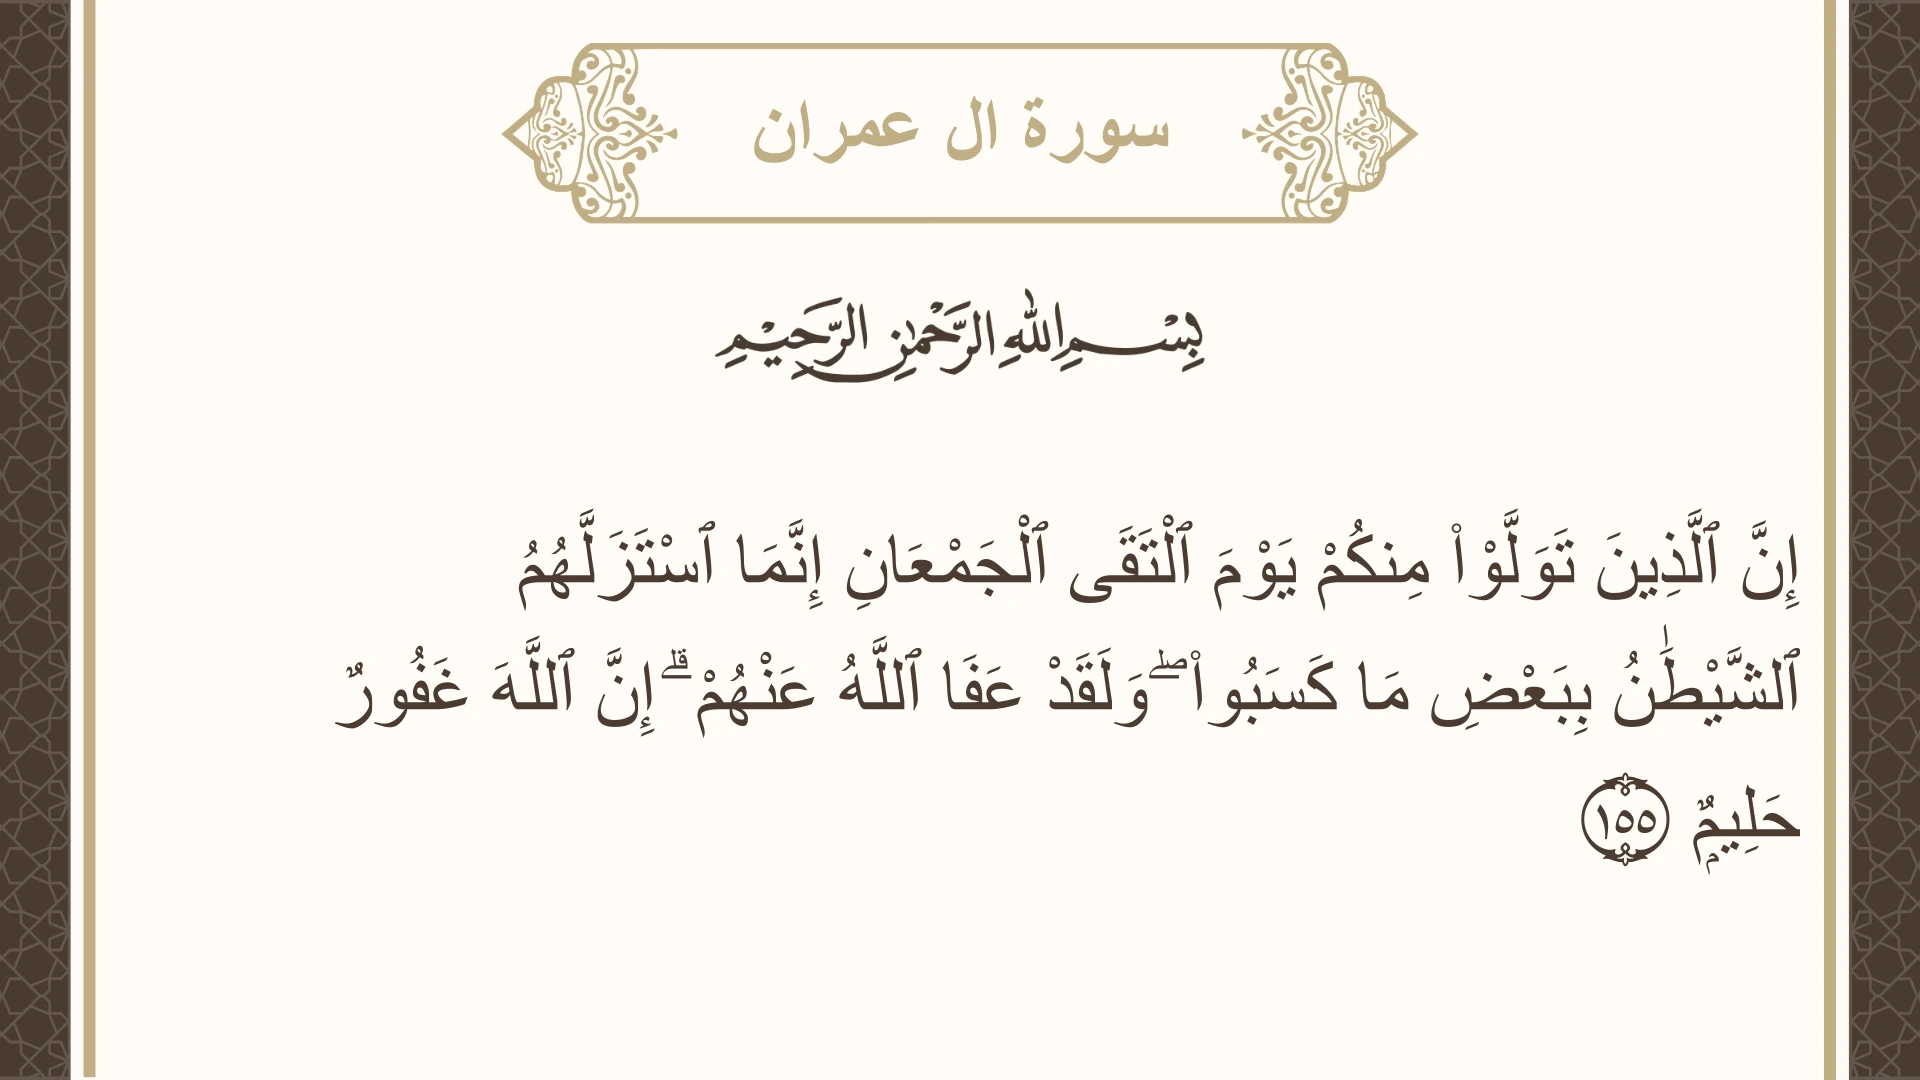 سورة ال عمران
بِسْمِ اللهِ الرَّحْمٰنِ الرَّحِيْمِ
إِنَّ ٱلَّذِينَ تَوَلَّوْا۟ مِنكُمْ يَوْمَ ٱلْتَقَى ٱلْجَمْعَانِ إِنَّمَا ٱسْتَزَلَّهُمُ
ٱلشَّيْطَٰنُ بِبَعْضِ مَا كَسَبُوا۟ ۖ وَلَقَدْ عَفَا ٱللَّهُ عَنْهُمْ ۗ إِنَّ ٱللَّهَ غَفُورٌ
حَلِيمٌۭ ١٥٥